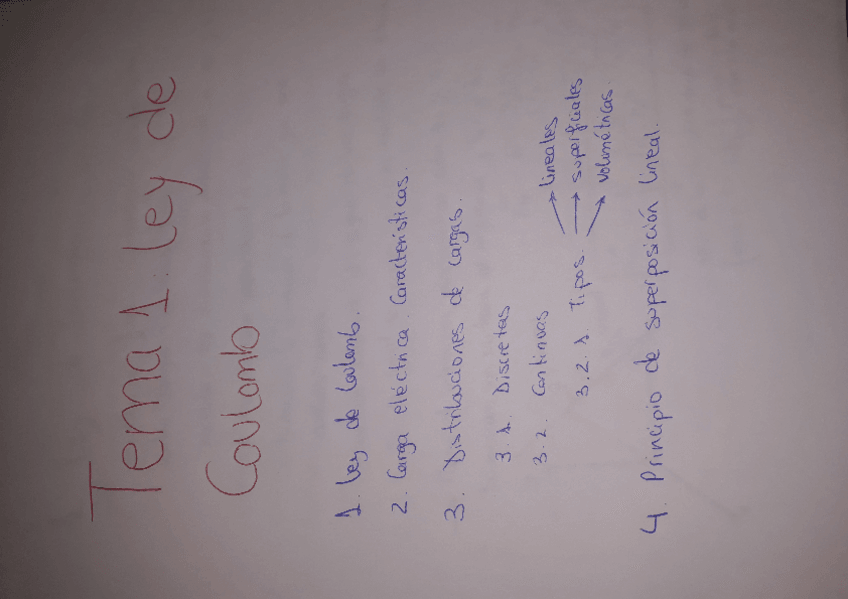 Tema 1: Ley de
Coulomb
1. Ley de Coulomb.
2. Carga eléctrica. Características.
3. Distribuciones de cargas.
3.1. Discretas
3.2. Continuas
3.2.1 Tipos. → lineales
→ superficiales
→ volumétricas.
4. Principio de superposición lineal.